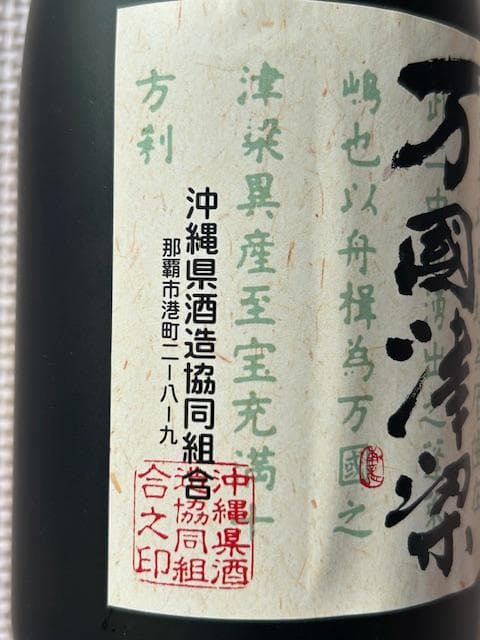 万國津梁
嶋也以舟楫為万國之
津梁異産至宝充満十
方利
沖縄県酒造協同組合
那覇市港町二ー八ー九
沖縄県酒
造協同組
合之印